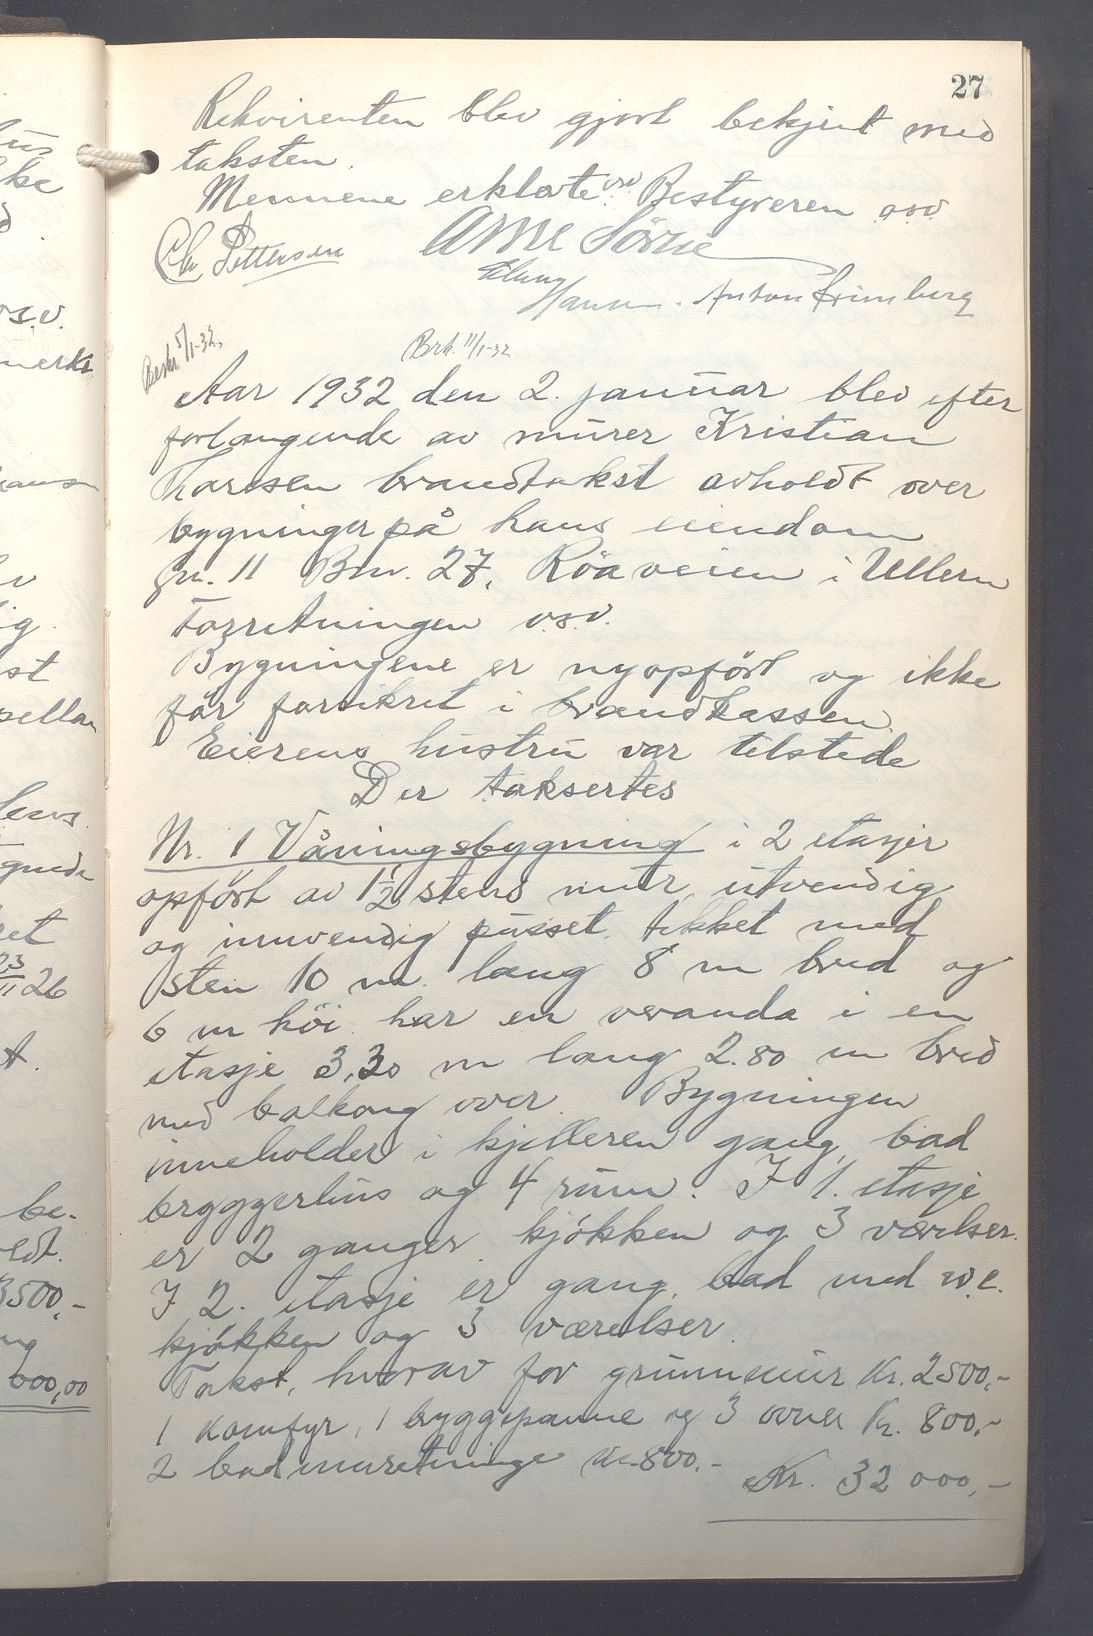 27
Rekvirenten blev gjort bekjent med
taksten.
Mennene erklærte osv. Bestyreren osv.
Chr Pettersen Arne
Hansen. Anton
Besikt. 5/1-32. Brk. 11/1-32
Aar 1932 den 2. januar blev efter
forlangende av murer Kristian
Larssen brandtakst avholdt over
bygninger på hans eiendom
gr. 11 Brn. 27, Röaveien i Ullern
Forretningen o.s.v.
Bygningene er nyopfört og ikke
för forsikret i brandkassen.
Eierens hustru var tilstede
Der taksertes
Nr. 1 Våningsbygning i 2 etasjer
opfört av 1 1/2 stens mur utvendig
og innvendig pusset, tekket med
sten 10 m. lang 8 m bred og
6 m höi har en veranda i en
etasje 3,30 m lang 2.80 m bred
med balkong over. Bygningen
inneholder i kjelleren gang, bad
bryggerhus og 4 rum. I 1. etasje
er 2 ganger kjökken og 3 værelser.
I 2. etasje er gang, bad med w.c.
kjökken og 3 værelser.
Takst, hvorav for grunnmur Kr. 2500,-
1 komfyr, 1 bryggepanne og 3 ovner Kr. 800,-
2 badinnretninger Kr. 800.-
Kr. 32 000,-
ke
o.s.v.
merke
ig
st
gnede
ret
23/11 26
t.
be-
ldt.
3500,-
ng
000,00